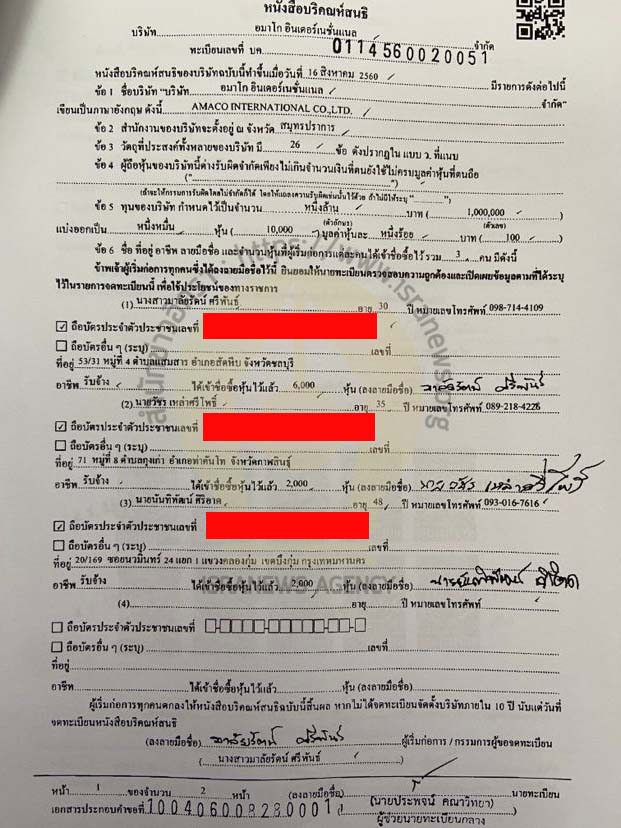 หนังสือบริคณห์สนธิ
บริษัท อมาโก อินเตอร์เนชั่นแนล จำกัด
ทะเบียนเลขที่ บค. 0114560020051
หนังสือบริคณห์สนธิของบริษัทฉบับนี้ทำขึ้นเมื่อวันที่ 16 สิงหาคม 2560 มีรายการดังต่อไปนี้
ข้อ 1 ชื่อบริษัท "บริษัท อมาโก อินเตอร์เนชั่นแนล จำกัด"
เขียนเป็นภาษาอังกฤษ ดังนี้ AMACO INTERNATIONAL CO.,LTD.
ข้อ 2 สำนักงานของบริษัทจะตั้งอยู่ ณ จังหวัด สมุทรปราการ
ข้อ 3 วัตถุที่ประสงค์ทั้งหลายของบริษัท มี 26 ข้อ ดังปรากฏใน แบบ ว. ที่แนบ
ข้อ 4 ผู้ถือหุ้นของบริษัทนี้ต่างรับผิดจำกัดเพียงไม่เกินจำนวนเงินที่ตนยังใช้ไม่ครบมูลค่าหุ้นที่ตนถือ
("....................")
(ถ้าจะให้กรรมการรับผิดโดยไม่จำกัดก็ได้ โดยให้แถลงความรับผิดเช่นนั้นไว้ด้วย ถ้าไม่มีให้ระบุ "..........")
ข้อ 5 ทุนของบริษัท กำหนดไว้เป็นจำนวน หนึ่งล้าน บาท ( 1,000,000 )
(ตัวอักษร) (ตัวเลข)
แบ่งออกเป็น หนึ่งหมื่น หุ้น ( 10,000 ) มูลค่าหุ้นละ หนึ่งร้อย บาท ( 100 )
ข้อ 6 ชื่อ ที่อยู่ อาชีพ ลายมือชื่อ และจำนวนหุ้นที่ผู้เริ่มก่อการแต่ละคนได้เข้าชื่อซื้อไว้ รวม 3 คน มีดังนี้
ข้าพเจ้าผู้เริ่มก่อการทุกคนซึ่งได้ลงลายมือชื่อไว้นี้ ยินยอมให้นายทะเบียนตรวจสอบความถูกต้องและเปิดเผยข้อมูลตามที่ได้ระบุ
ไว้ในรายการจดทะเบียนนี้ เพื่อใช้ประโยชน์ของทางราชการ
(1) นางสาวมาลัยรัตน์ ศรีพันธุ์ อายุ 30 ปี หมายเลขโทรศัพท์ 098-714-4109
ถือบัตรประจำตัวประชาชนเลขที่
ถือบัตรอื่น ๆ (ระบุ) เลขที่
ที่อยู่ 53/31 หมู่ที่ 4 ตำบลแสมสาร อำเภอสัตหีบ จังหวัดชลบุรี
อาชีพ รับจ้าง ได้เข้าชื่อซื้อหุ้นไว้แล้ว 6,000 หุ้น (ลงลายมือชื่อ) มาลัยรัตน์ ศรีพันธ์
(2) นายวัชร เหล่าศรีโพธิ์ อายุ 35 ปี หมายเลขโทรศัพท์ 089-218-4226
ถือบัตรประจำตัวประชาชนเลขที่
ถือบัตรอื่น ๆ (ระบุ) เลขที่
ที่อยู่ 71 หมู่ที่ 8 ตำบลกุงเก่า อำเภอท่าคันโท จังหวัดกาฬสินธุ์
อาชีพ รับจ้าง ได้เข้าชื่อซื้อหุ้นไว้แล้ว 2,000 หุ้น (ลงลายมือชื่อ) นายวัชร เหล่าศรีโพธิ์
(3) นายนันทิพัฒน์ ศิริอาด อายุ 48 ปี หมายเลขโทรศัพท์ 093-016-7616
ถือบัตรประจำตัวประชาชนเลขที่
ถือบัตรอื่น ๆ (ระบุ) เลขที่
ที่อยู่ 20/169 ซอยนวมินทร์ 24 แยก 1 แขวงคลองกุ่ม เขตบึงกุ่ม กรุงเทพมหานคร
อาชีพ รับจ้าง ได้เข้าชื่อซื้อหุ้นไว้แล้ว 2,000 หุ้น (ลงลายมือชื่อ)
(4) อายุ ปี หมายเลขโทรศัพท์
ถือบัตรประจำตัวประชาชนเลขที่
ถือบัตรอื่น ๆ (ระบุ) เลขที่
ที่อยู่
อาชีพ ได้เข้าชื่อซื้อหุ้นไว้แล้ว หุ้น (ลงลายมือชื่อ)
ผู้เริ่มก่อการทุกคนตกลงให้หนังสือบริคณห์สนธิฉบับนี้สิ้นผล หากไม่ได้จดทะเบียนจัดตั้งบริษัทภายใน 10 ปี นับแต่วันที่
จดทะเบียนหนังสือบริคณห์สนธิ
(ลงลายมือชื่อ) มาลัยรัตน์ ศรีพันธ์ ผู้เริ่มก่อการ / กรรมการผู้ขอจดทะเบียน
( นางสาวมาลัยรัตน์ ศรีพันธุ์ )
หน้า 1 ของจำนวน 2 หน้า (ลงลายมือชื่อ) นายทะเบียน
เอกสารประกอบคำขอที่ 100406008280001 ( (นายประพจน์ คณาวิทยา) )
ผู้ช่วยนายทะเบียนกลาง
สำนักข่าวอิศรา https://www.isranews.org
ISRANEWS AGENCY